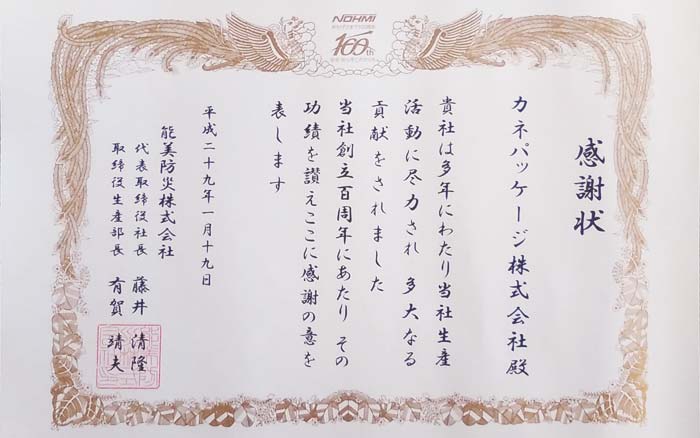 NOHMI
100th
感謝状
カネパッケージ株式会社殿
貴社は多年にわたり当社生産
活動に尽力され 多大なる
貢献をされました
当社創立百周年にあたり その
功績を讃えここに感謝の意を
表します
平成二十九年一月十九日
能美防災株式会社
代表取締役社長 藤井 清隆
取締役生産部長 有賀 靖夫